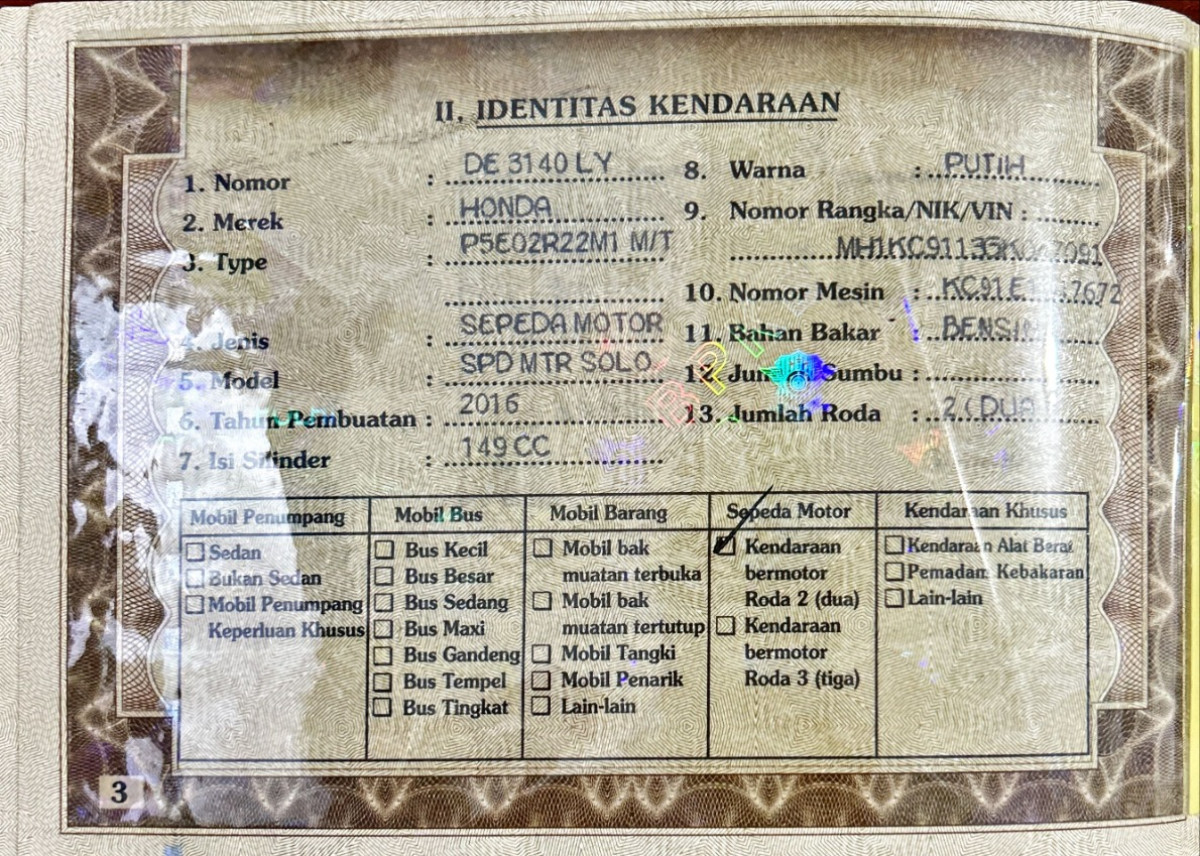 II. IDENTITAS KENDARAAN
1. Nomor : DE 3140 LY
2. Merek : HONDA
3. Type : P5E02R22M1 M/T
4. Jenis : SEPEDA MOTOR
5. Model : SPD MTR SOLO
6. Tahun Pembuatan : 2016
7. Isi Silinder : 149 CC
8. Warna : PUTIH
9. Nomor Rangka/NIK/VIN :
10. Nomor Mesin :
11. Bahan Bakar : BENSIN
12. Jumlah Sumbu :
13. Jumlah Roda : 2 (DUA)
Mobil Penumpang
Sedan
Bukan Sedan
Mobil Penumpang
Keperluan Khusus
Mobil Bus
Bus Kecil
Bus Besar
Bus Sedang
Bus Maxi
Bus Gandeng
Bus Tempel
Bus Tingkat
Mobil Barang
Mobil bak
muatan terbuka
Mobil bak
muatan tertutup
Mobil Tangki
Mobil Penarik
Lain-lain
Sepeda Motor
Kendaraan
bermotor
Roda 2 (dua)
Kendaraan
bermotor
Roda 3 (tiga)
Kendaraan Khusus
Kendaraan Alat Berat
Pemadam Kebakaran
Lain-lain
3